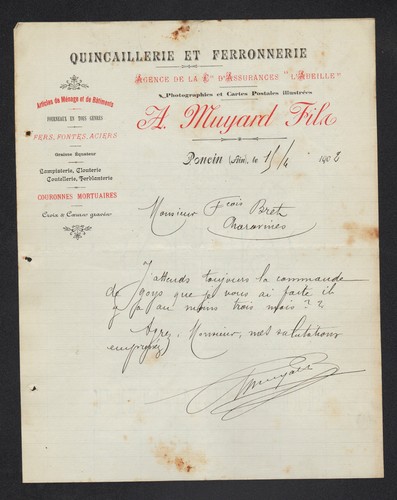 QUINCAILLERIE ET FERRONNERIE
AGENCE DE LA Cie D'ASSURANCES "L'ABEILLE"
Photographies et Cartes Postales illustrées
A. Muyard Fils
Articles de Ménage et de Bâtiments
FOURNEAUX EN TOUS GENRES
FERS, FONTES, ACIERS
Graisse Equateur
Lampisterie, Clouterie
Coutellerie, Ferblanterie
COURONNES MORTUAIRES
Croix et Cœurs gravés
Poncin (Ain), le 15/4 1902
Monsieur Fcois Bret
Charavines
J'attends toujours la commande
de que je vous ai faite il
y a au moins trois mois ??
Agrez, Monsieur, mes salutations
empressées
Muyard